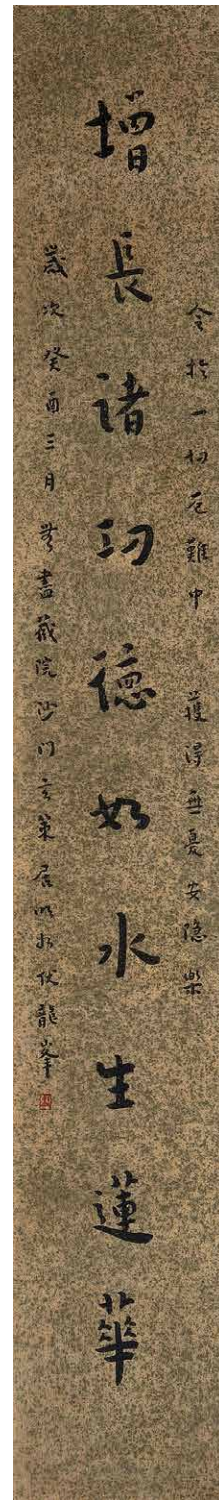 令於一切厄難中 獲得無憂安隱樂
增長諸功德如水生蓮華
歲次癸酉三月 無盡藏院沙門玄策居明州伏龍峯